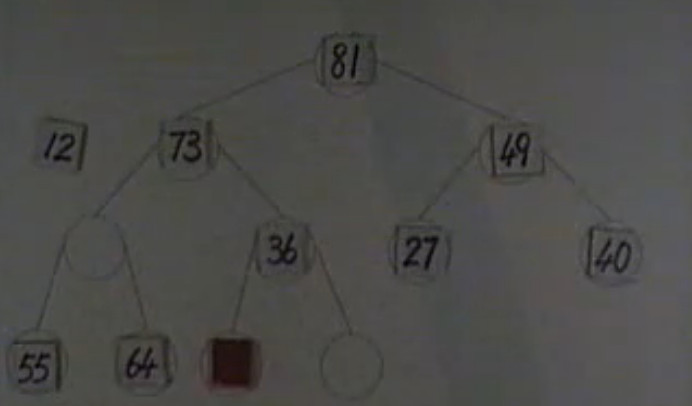 81
12 73 49
36 27 40
55 64